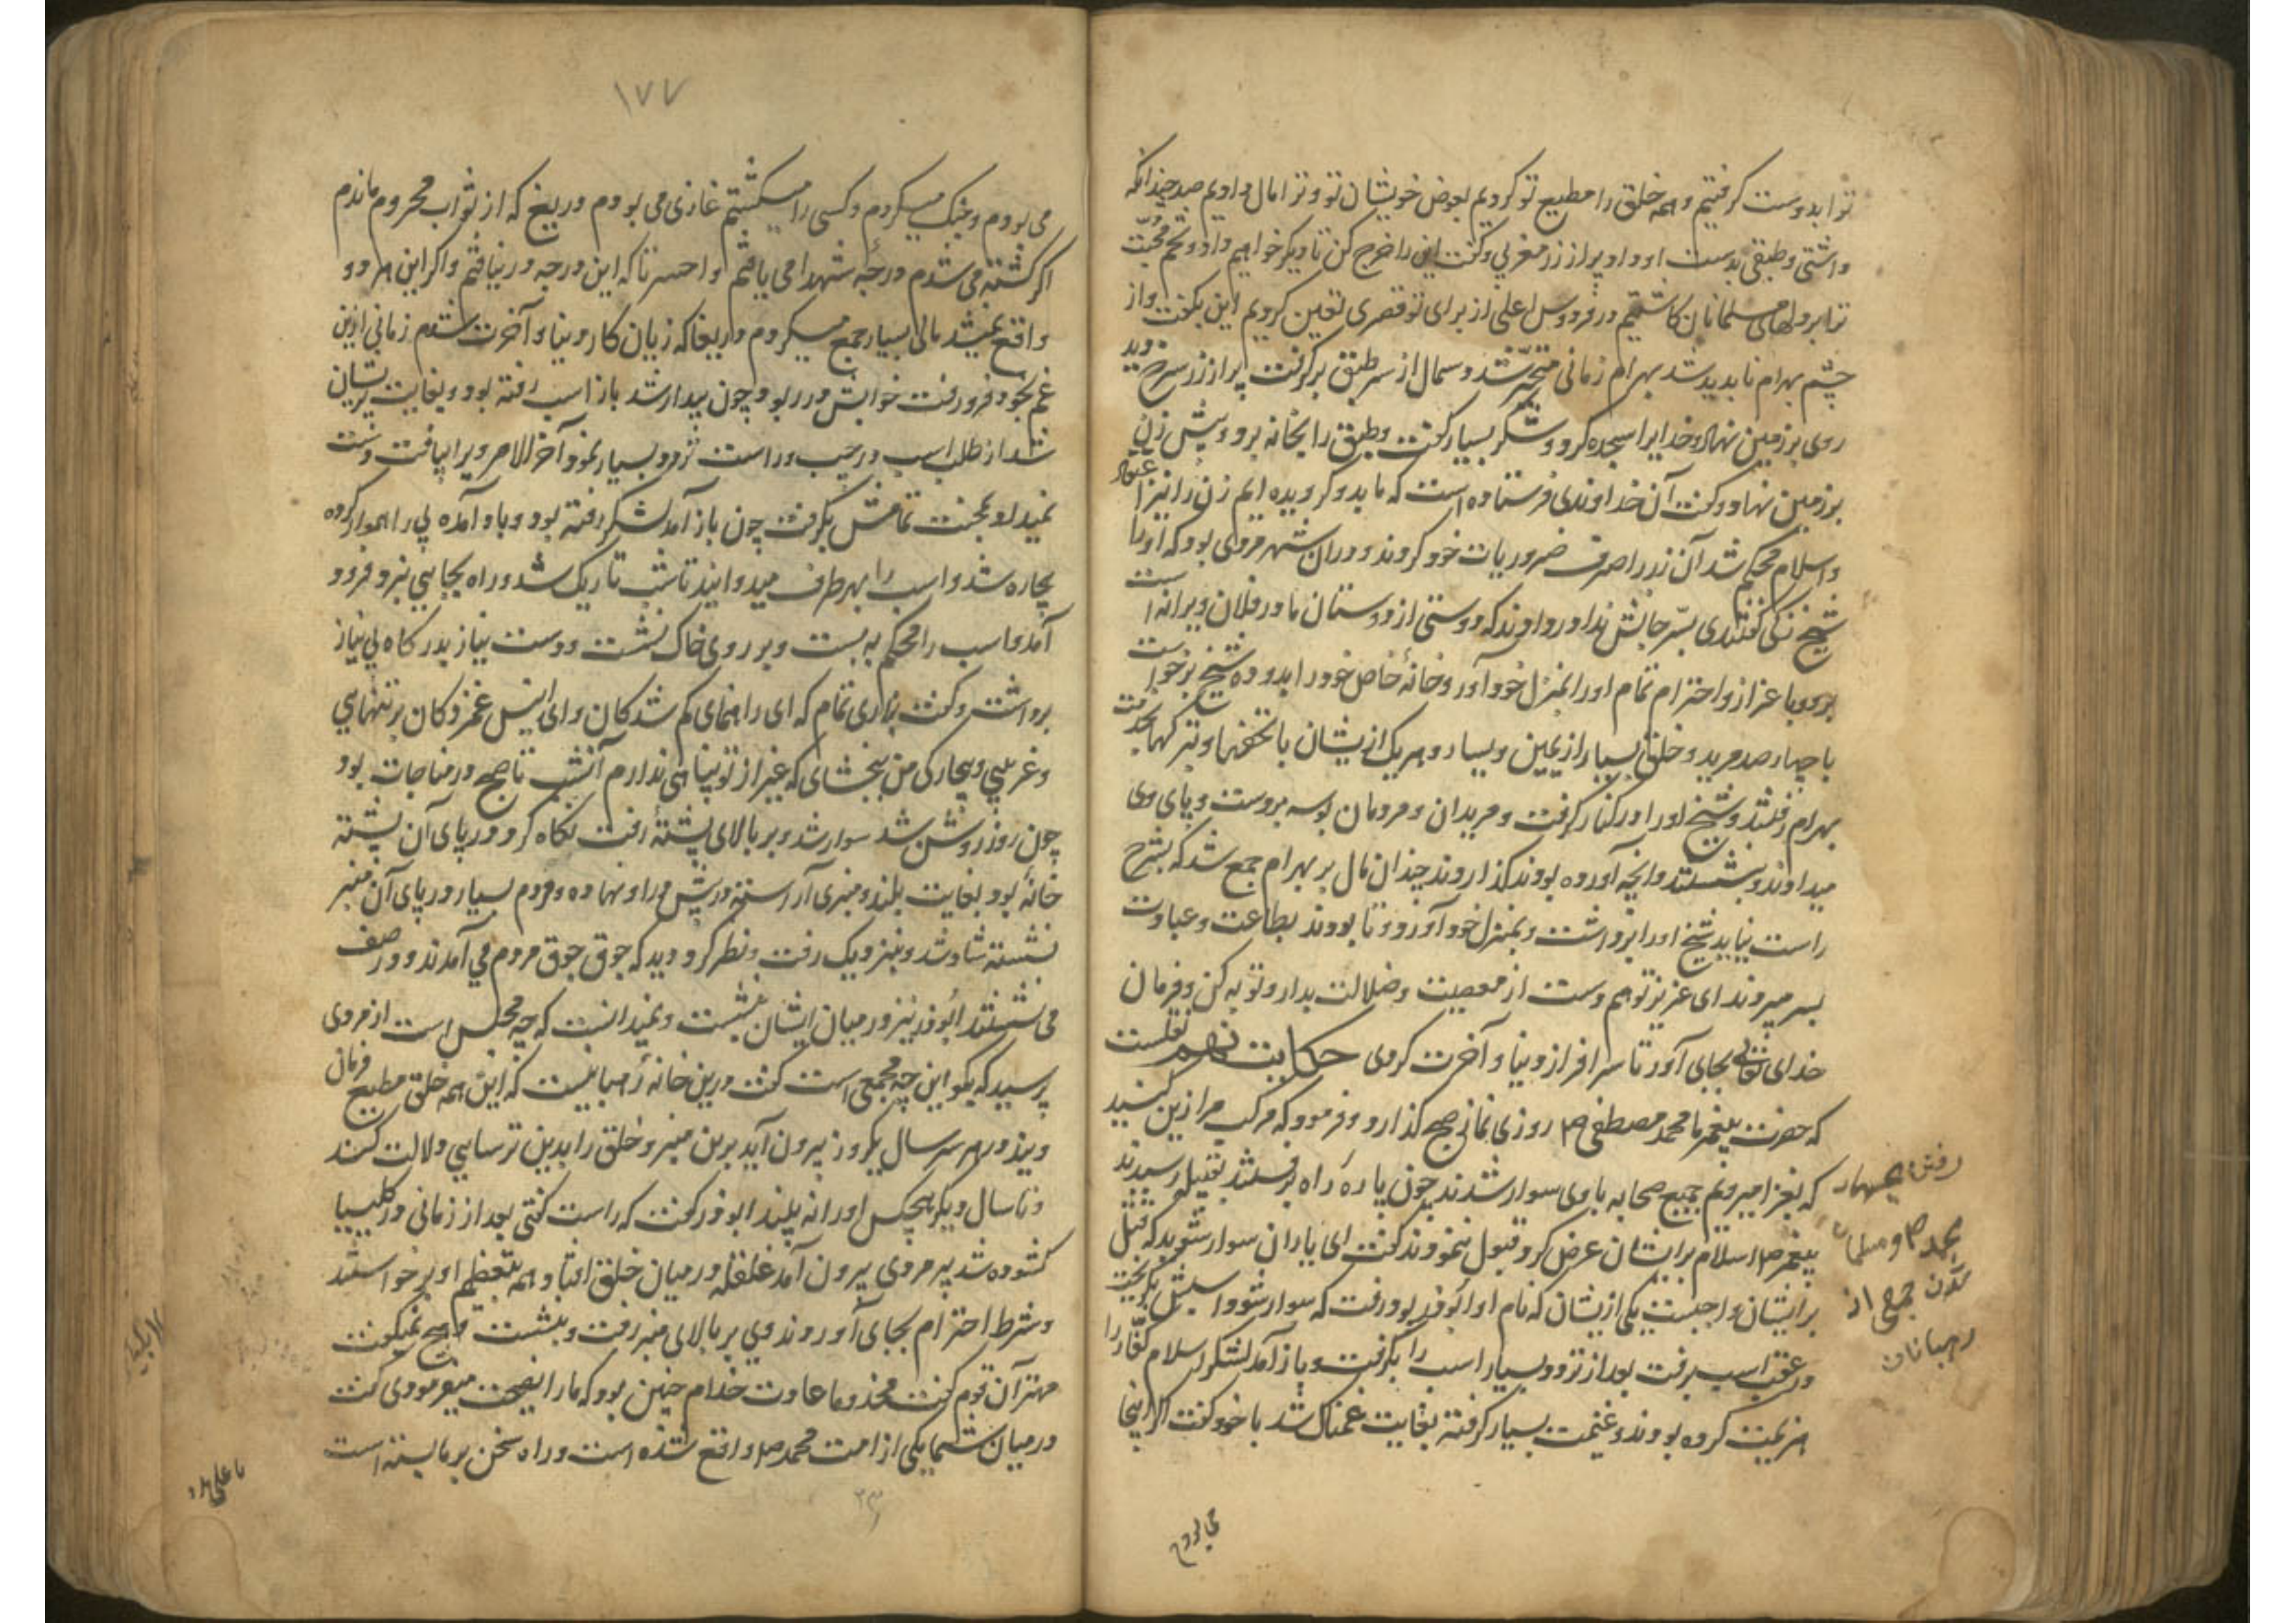 ترا بدوست گرفتیم و همه خلق را مطیع تو کردیم بعوض خویشان تو و ترا مال دادیم صد چندانکه
داشتی و طبقی بدست او داد پر از زر مغربی و گفت این را خرج کن تا دیگر خواهیم داد و تخم محبّت
ترا بر دلهای مسلمانان کاشتیم و در فردوس اعلی از برای تو قصری تعین کردیم این بگفت و از
چشم بهرام ناپدید شد بهرام زمانی متحیّر شد دسمال از سر طبق برگرفت پر از زر سرخ دید
روی بر زمین نهاد و خدایرا سجده کرد و شکر بسیار گفت و طبق را بخانه برد و پیش زن
بر زمین نهاد و گفت آن خداوندی فرستاده است که ما بدو گرویده ایم زن را نیز اعتقاد
و اسلام محکم شد آن زر را صرف ضروریات خود کردند و در آن شهر مردی بود که او را
شیخ زنگی گفتندی بسّر جانش ندا در دادند که دوستی از دوستان ما در فلان ویرانه است
برو و با عزاز و احترام تمام او را بمنزل خود آور و خانهٔ خاص خود را بدو ده شیخ برخواست
با چهار صد مرید و خلق بسیار از یمین و یسار و هر یک از یشان با تحفها و تبرکها بخدمت
بهرام رفتند و شیخ او را در کنار گرفت و مریدان و مردمان بوسه بر دست و پای وی
میدادند و بنشستند و آنچه آورده بودند گذاردند چندان مال بر بهرام جمع شد که بشرح
راست نیاید شیخ او را برداشت و بمنزل خود آورد و تا بودند بطاعت و عبادت
بسر میبردند ای عزیز تو هم دست از معصیت و ضلالت بدار و توبه کن و فرمان
خدای تعالی بجای آور تا سرافراز دنیا و آخرت گردی حکایت نهم نقلست
که حضرت پیغمبر ما محمد مصطفی صلم روزی نماز صبح گذارد و فرمود که مرکب مرا زین کنید
که بغزا میرویم جمیع صحابه با وی سوار شدند چون پارهٔ راه برفتند بقبیله رسیدند
پیغمبر صلم اسلام بر ایشان عرض کرد قبول ننمودند گفت ای یاران سوار شوید که قتل
بر ایشان واجبست یکی از یشان که نام او ابوذر بود رفت که سوار شود اسپش بگریخت
در عقب اسپ برفت بعد از تردد بسیار اسب را بگرفت و باز آمد لشکر اسلام کفّار را
هزیمت کرده بودند و غنیمت بسیار گرفته بغایت غمناک شد با خود گفت اگر اینجا
رفتن پیغمبر
و مسلمان
شدن جمعی از
رهبانان
می بودم
۱۷۷
می بودم و جنگ میکردم و کسی را میکشتم غازی می بودم دریغ که از ثواب محروم ماندم
اگر کشته می شدم درجهٔ شهدا می یافتم وا حسرتا که این درجه در نیافتم و اگر این هر دو
واقع نمیشد مالی بسیار جمع میکردم دریغا که زیان کار دنیا و آخرت شدم زمانی ازین
غم بخود فرو رفت خوابش در ربود چون بیدار شد باز اسب رفته بود و بغایت پریشان
شد از طلب اسپ در چپ و راست تردد بسیار نمود آخر الامر ویرا بیافت و دست
نمیداد بمحنت تمامش بگرفت چون باز آمد لشکر رفته بود و باد آمده پی را هموار کرده
بیچاره شد و اسب را بهر طرف میدوانید تا شب تاریک شد و راه بجایی نبرد فرود
آمد و اسب را محکم به بست و بر روی خاک نشست و دست نیاز بدرگاه بی نیاز
برداشت و گفت بزاری تمام که ای راهنمای گم شدگان و ای انیس غمزدگان بر تنهایی
و غریبی و بیچارگی من ببخشای که غیر از تو پناهی ندارم آنشب تا صبح در مناجات بود
چون روز روشن شد سوار شد و بر بالای پشتهٔ رفت نگاه کرد در پای آن پشته
خانهٔ بود بغایت بلند و منبری آراسته در پیش در او نهاده و مردم بسیار در پای آن منبر
نشسته شاد شد و نزدیک رفت و نظر کرد دید که جوق جوق مردم می آمدند و در صف
می نشستند ابوذر نیز در میان ایشان بنشست و نمیدانست که چه مجلس است از مردی
پرسید که بگو این چه مجمعی است گفت درین خانه رهبانیست که این همه خلق مطیع فرمان
ویند و در هر سر سال یکروز بیرون آید برین منبر و خلق را بدین ترسایی دلالت کند
و تا سال دیگر هیچکس او را نه بیند ابوذر گفت که راست گفتی بعد از زمانی در کلیسیا
گشوده شد پیر مردی بیرون آمد غلغله در میان خلق افتاد و همه بتعظیم او برخواستند
و شرط احترام بجای آوردند وی بر بالای منبر رفت و بنشست و هیچ نمیگفت
مهتر آن قوم گفت مخدوما عادت خدام چنین بود که ما را نصیحت میفرمودی گفت
در میان شما یکی از امت محمد صلم واقع شده است و راه سخن بر ما بسته است